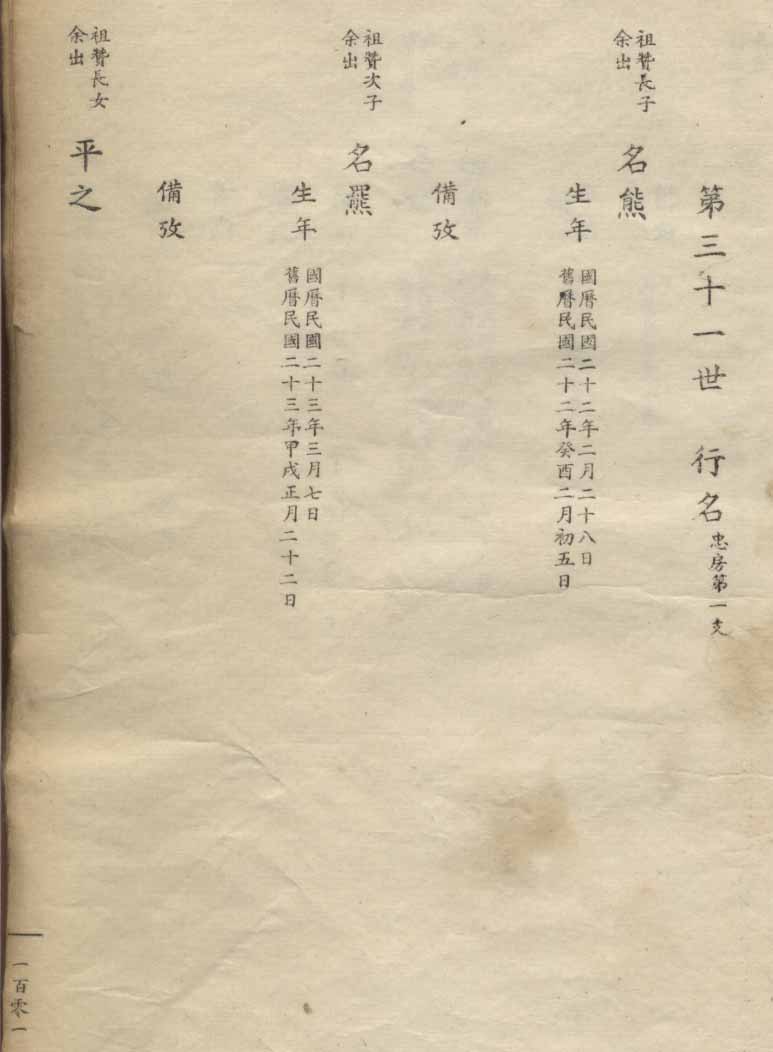 第三十一世 行名 忠房第一支
祖贊長子
余出
名熊
生年
國曆民國二十二年二月二十八日
舊曆民國二十二年癸酉二月初五日
備攷
祖贊次子
余出
名羆
生年
國曆民國二十三年三月七日
舊曆民國二十三年甲戌正月二十二日
備攷
祖贊長女
余出
平之
一百零一